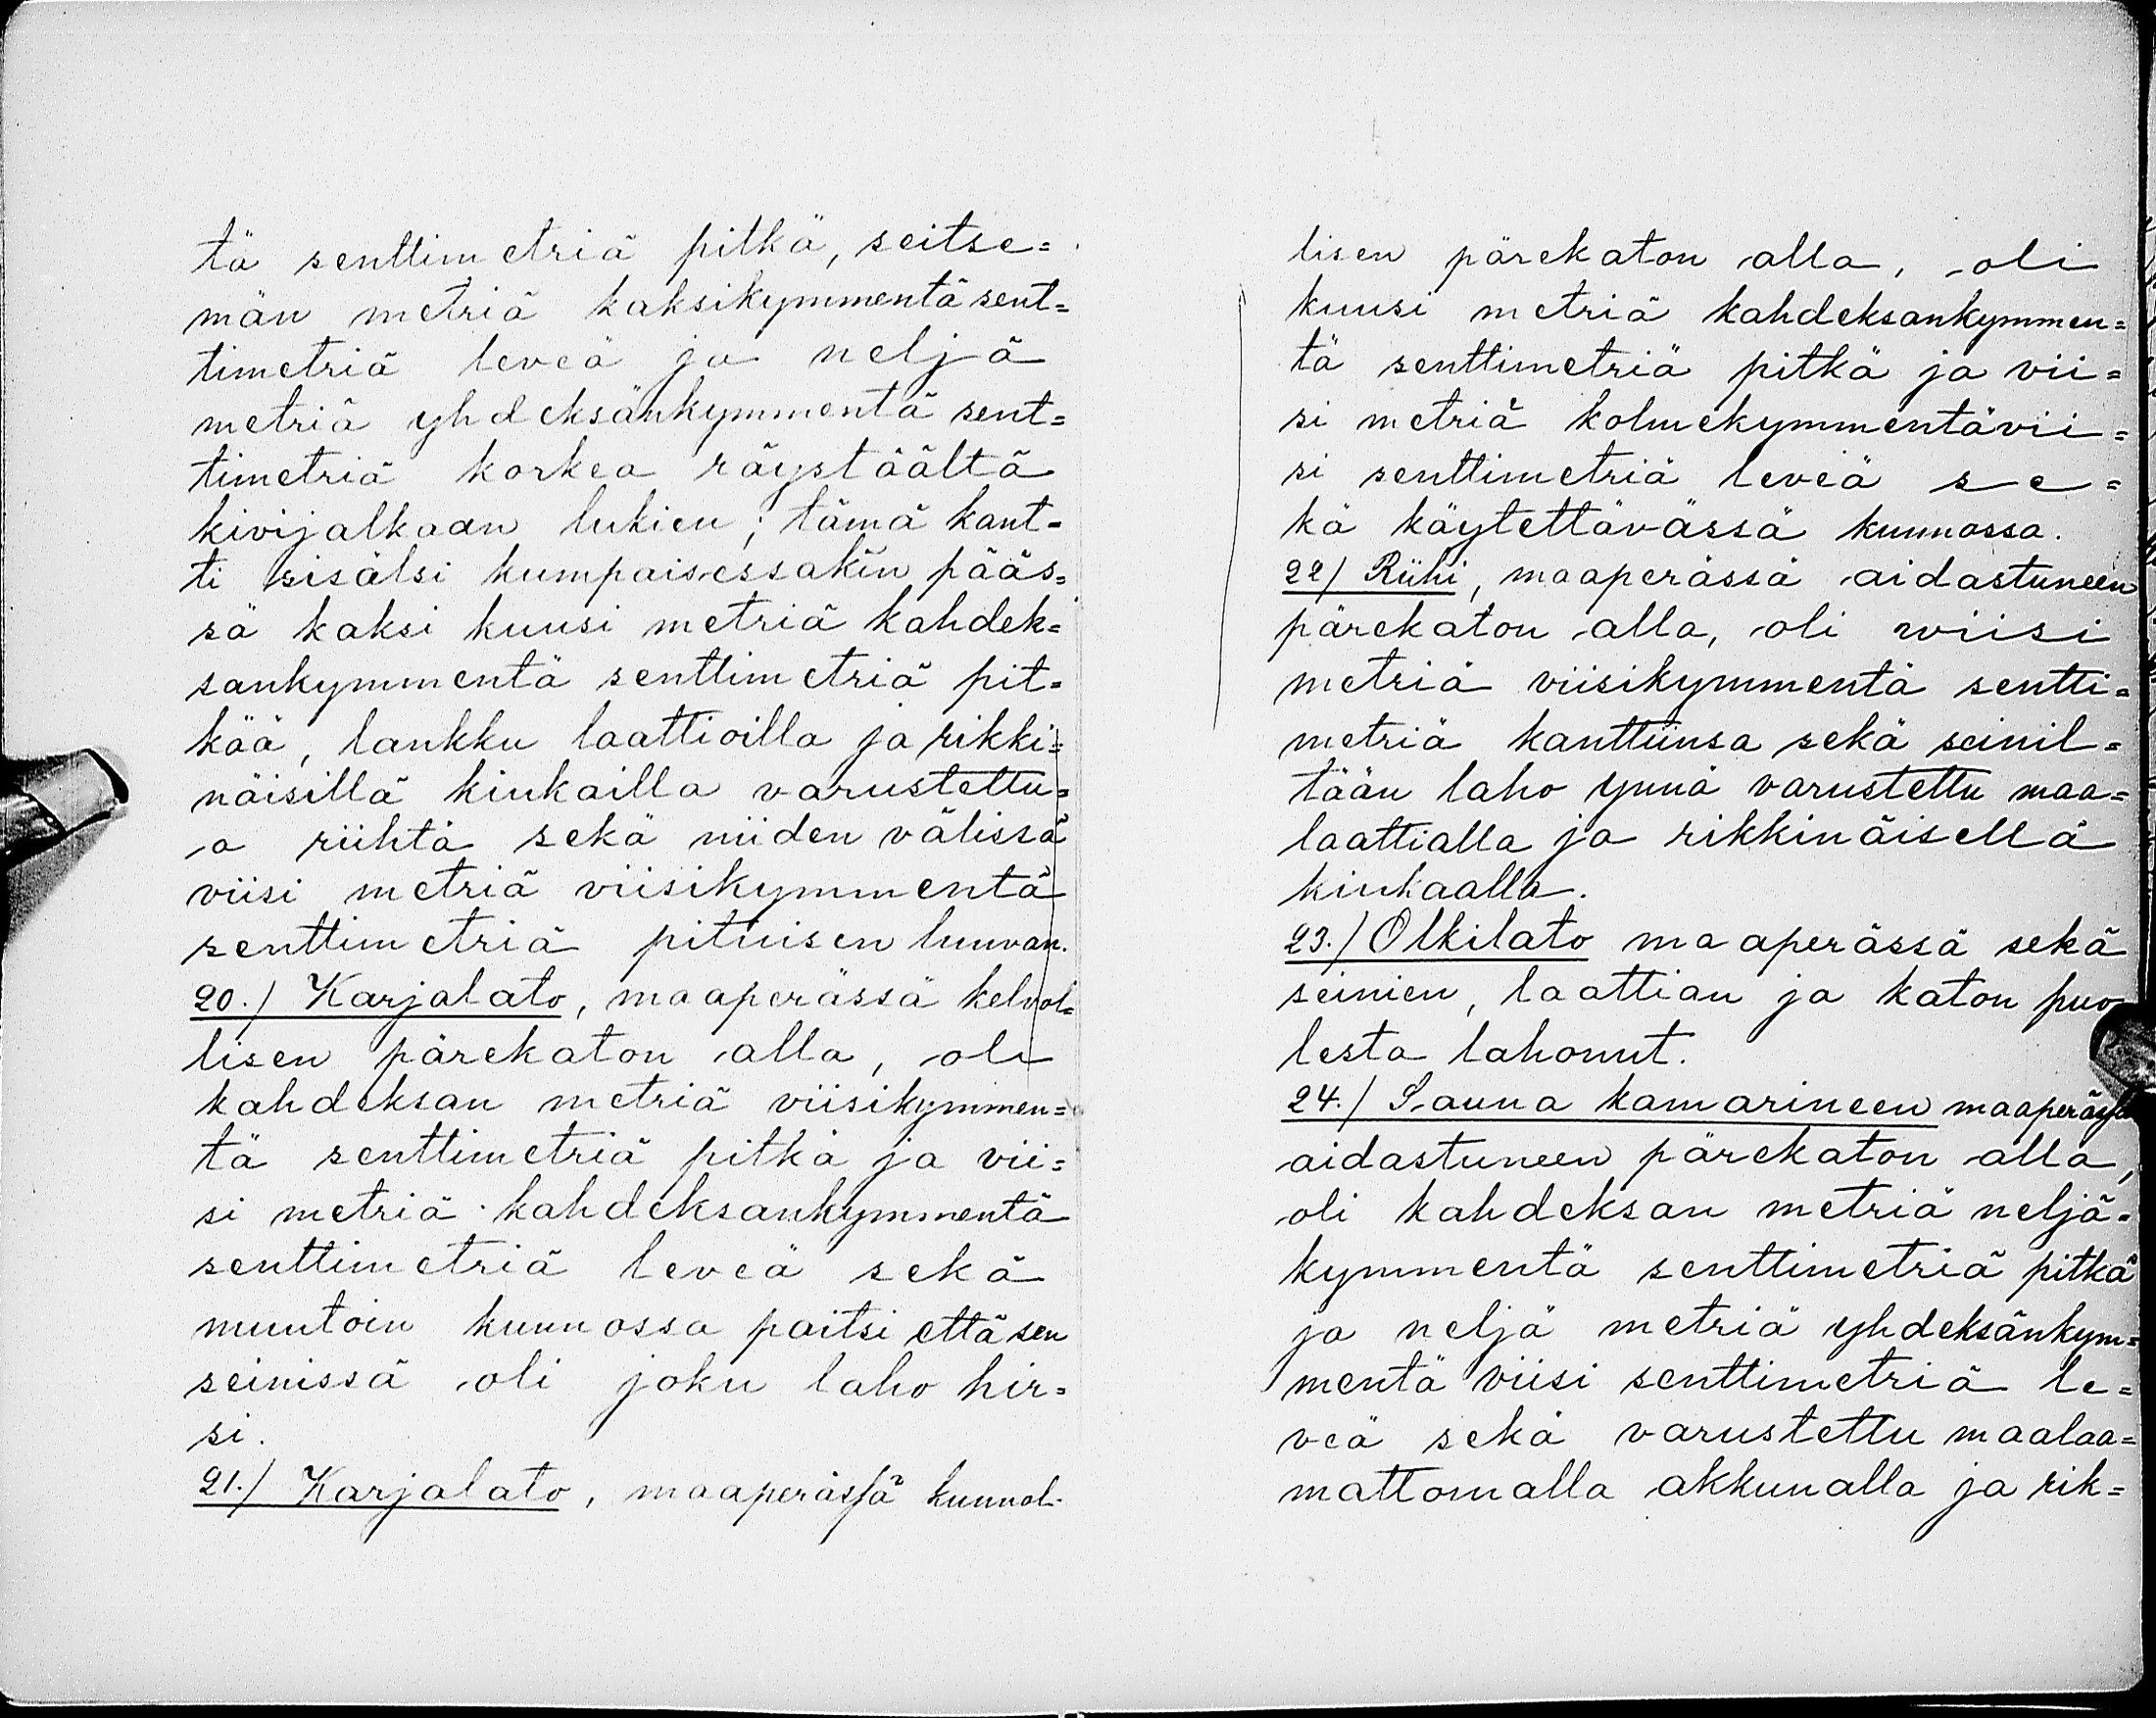 tä senttimetriä pitkä, seitse=
män metriä kaksikymmentä sent=
timetriä leveä ja neljä
metriä yhdeksänkymmentä sent=
timetriä korkea räystäältä
kivijalkaan lukien; tämä kant=
ti sisälsi kumpaisessakin pääs=
sä kaksi kuusi metriä kahdek=
sankymmentä senttimetriä pit=
kää, lankku laattioilla ja rikki=
näisillä kiukailla varustettu=
a riihtä sekä niiden välissä
viisi metriä viisikymmentä
senttimetriä pituisen luuvan.
20./ Karjalato, maaperässä kelvol=
lisen pärekaton alla, oli
kahdeksan metriä viisikymmen=
tä senttimetriä pitkä ja vii=
si metriä kahdeksankymmentä
senttimetriä leveä sekä
muutoin kunnossa paitsi että sen
seinissä oli joku laho hir=
si.
21./ Karjalato, maaperässä kunnol=
lisen pärekaton alla, oli
kuusi metriä kahdeksankymmen=
tä senttimetriä pitkä ja vii=
si metriä kolmekymmentävii=
si senttimetriä leveä se=
kä käytettävässä kunnossa.
22/ Riihi, maaperässä aidastuneen
pärekaton alla, oli viisi
metriä viisikymmentä sentti=
metriä kanttiinsa sekä seinil=
tään laho ynnä varustettu maa=
laattialla ja rikkinäisellä
kiukaalla.
23./ Olkilato maaperässä sekä
seinien, laattian ja katon puo
lesta lahonut.
24./ Sauna kamarineen maaperässä
aidastuneen pärekaton alla,
oli kahdeksan metriä neljä=
kymmentä senttimetriä pitkä
ja neljä metriä yhdeksänkym=
mentä viisi senttimetriä le=
veä sekä varustettu maalaa=
mattomalla akkunalla ja rik=